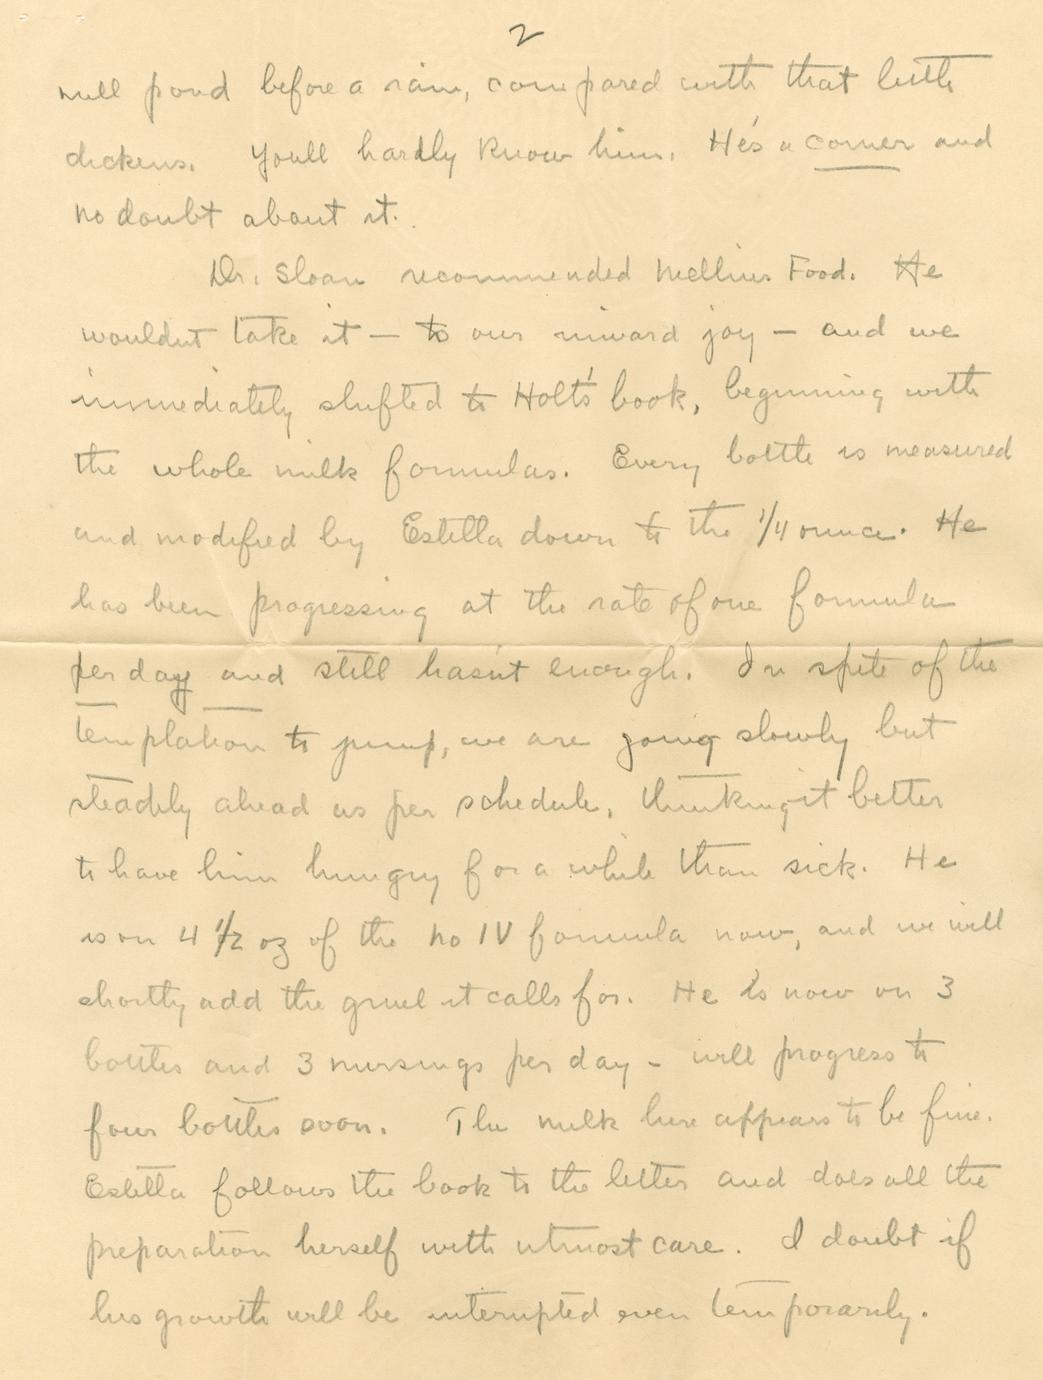 2
mill pond before a rain, compared with that little
dickens. Youll hardly know him. He's a comer and
no doubt about it.
Dr. Sloan recommended Mellins Food. He
wouldnt take it — to our inward joy — and we
immediately shifted to Holt's book, beginning with
the whole milk formulas. Every bottle is measured
and modified by Estella down to the 1/4 ounce. He
has been progressing at the rate of one formula
per day and still hasn't enough. In spite of the
temptation to jump, we are going slowly but
steadily ahead as per schedule, thinking it better
to have him hungry for a while than sick. He
is on 4 1/2 oz of the No IV formula now, and we will
shortly add the gruel it calls for. He is now on 3
bottles and 3 nursings per day – will progress to
four bottles soon. The milk here appears to be fine.
Estella follows the book to the letter and does all the
preparation herself with utmost care. I doubt if
his growth will be interrupted even temporarily.